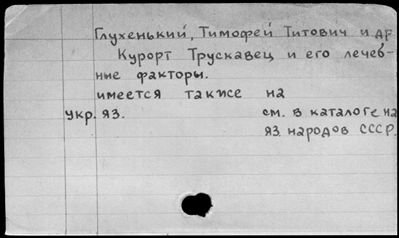 Глухенький, Тимофей Титович и др
Курорт Трускавец и его лечеб-
ные факторы.
имеется также на
укр. яз. см. в каталоге на
яз. народов СССР.